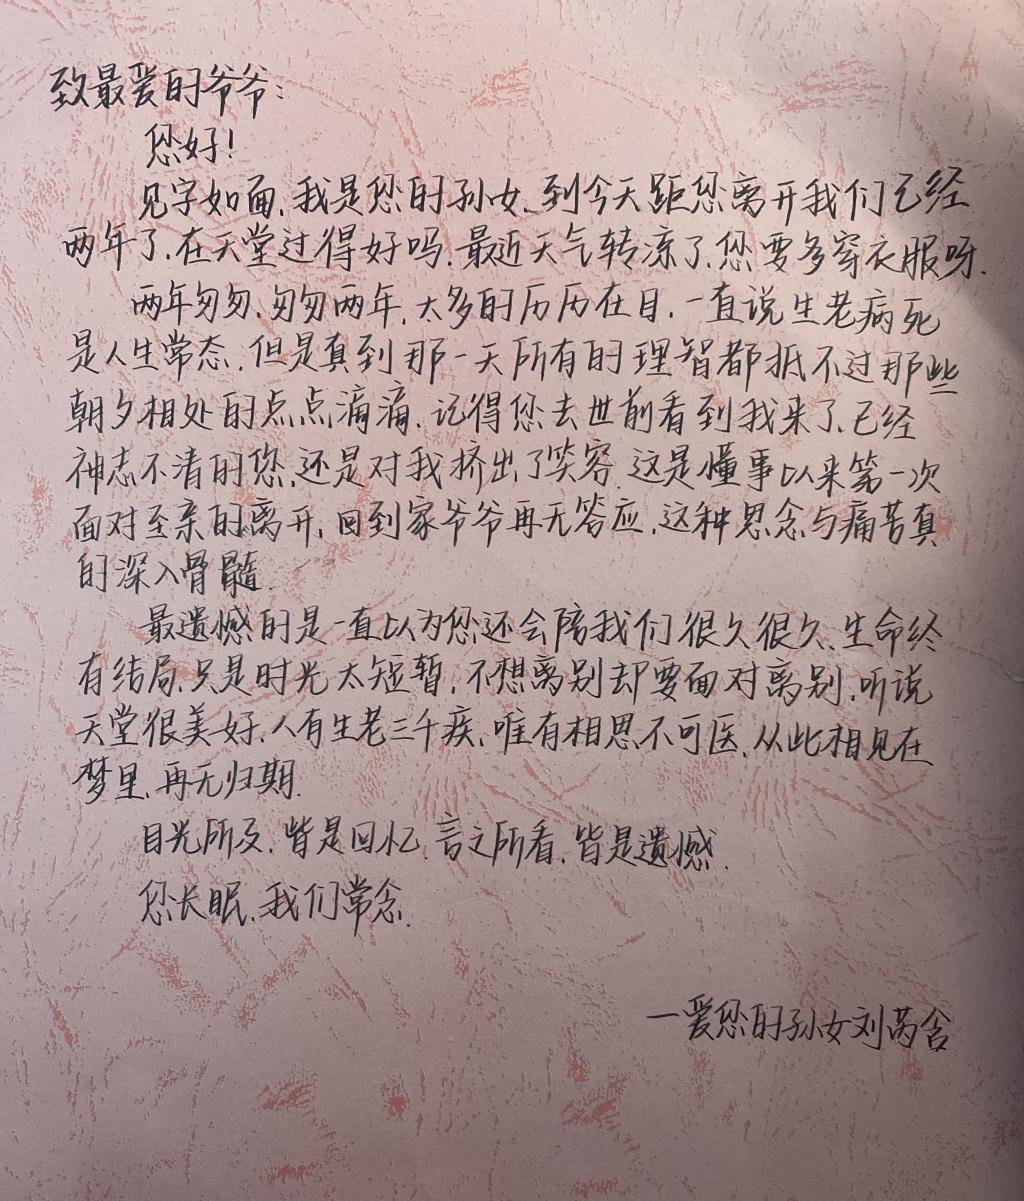 致最爱的爷爷:
您好!
见字如面,我是您的孙女,到今天距您离开我们已经
两年了,在天堂过得好吗,最近天气转凉了,您要多穿衣服呀.
两年匆匆,匆匆两年,太多的历历在目,一直说生老病死
是人生常态,但是真到那一天所有的理智都抵不过那些
朝夕相处的点点滴滴,记得您去世前看到我来了,已经
神志不清的您,还是对我挤出了笑容.这是懂事以来第一次
面对至亲的离开,回到家爷爷再无答应,这种思念与痛苦真
的深入骨髓.
最遗憾的是一直以为您还会陪我们很久很久,生命终
有结局,只是时光太短暂,不想离别却要面对离别,听说
天堂很美好,人有生老三千疾,唯有相思不可医,从此相见在
梦里,再无归期.
目光所及,皆是回忆,言之所看,皆是遗憾.
您长眠,我们常念.
一爱您的孙女刘芮含